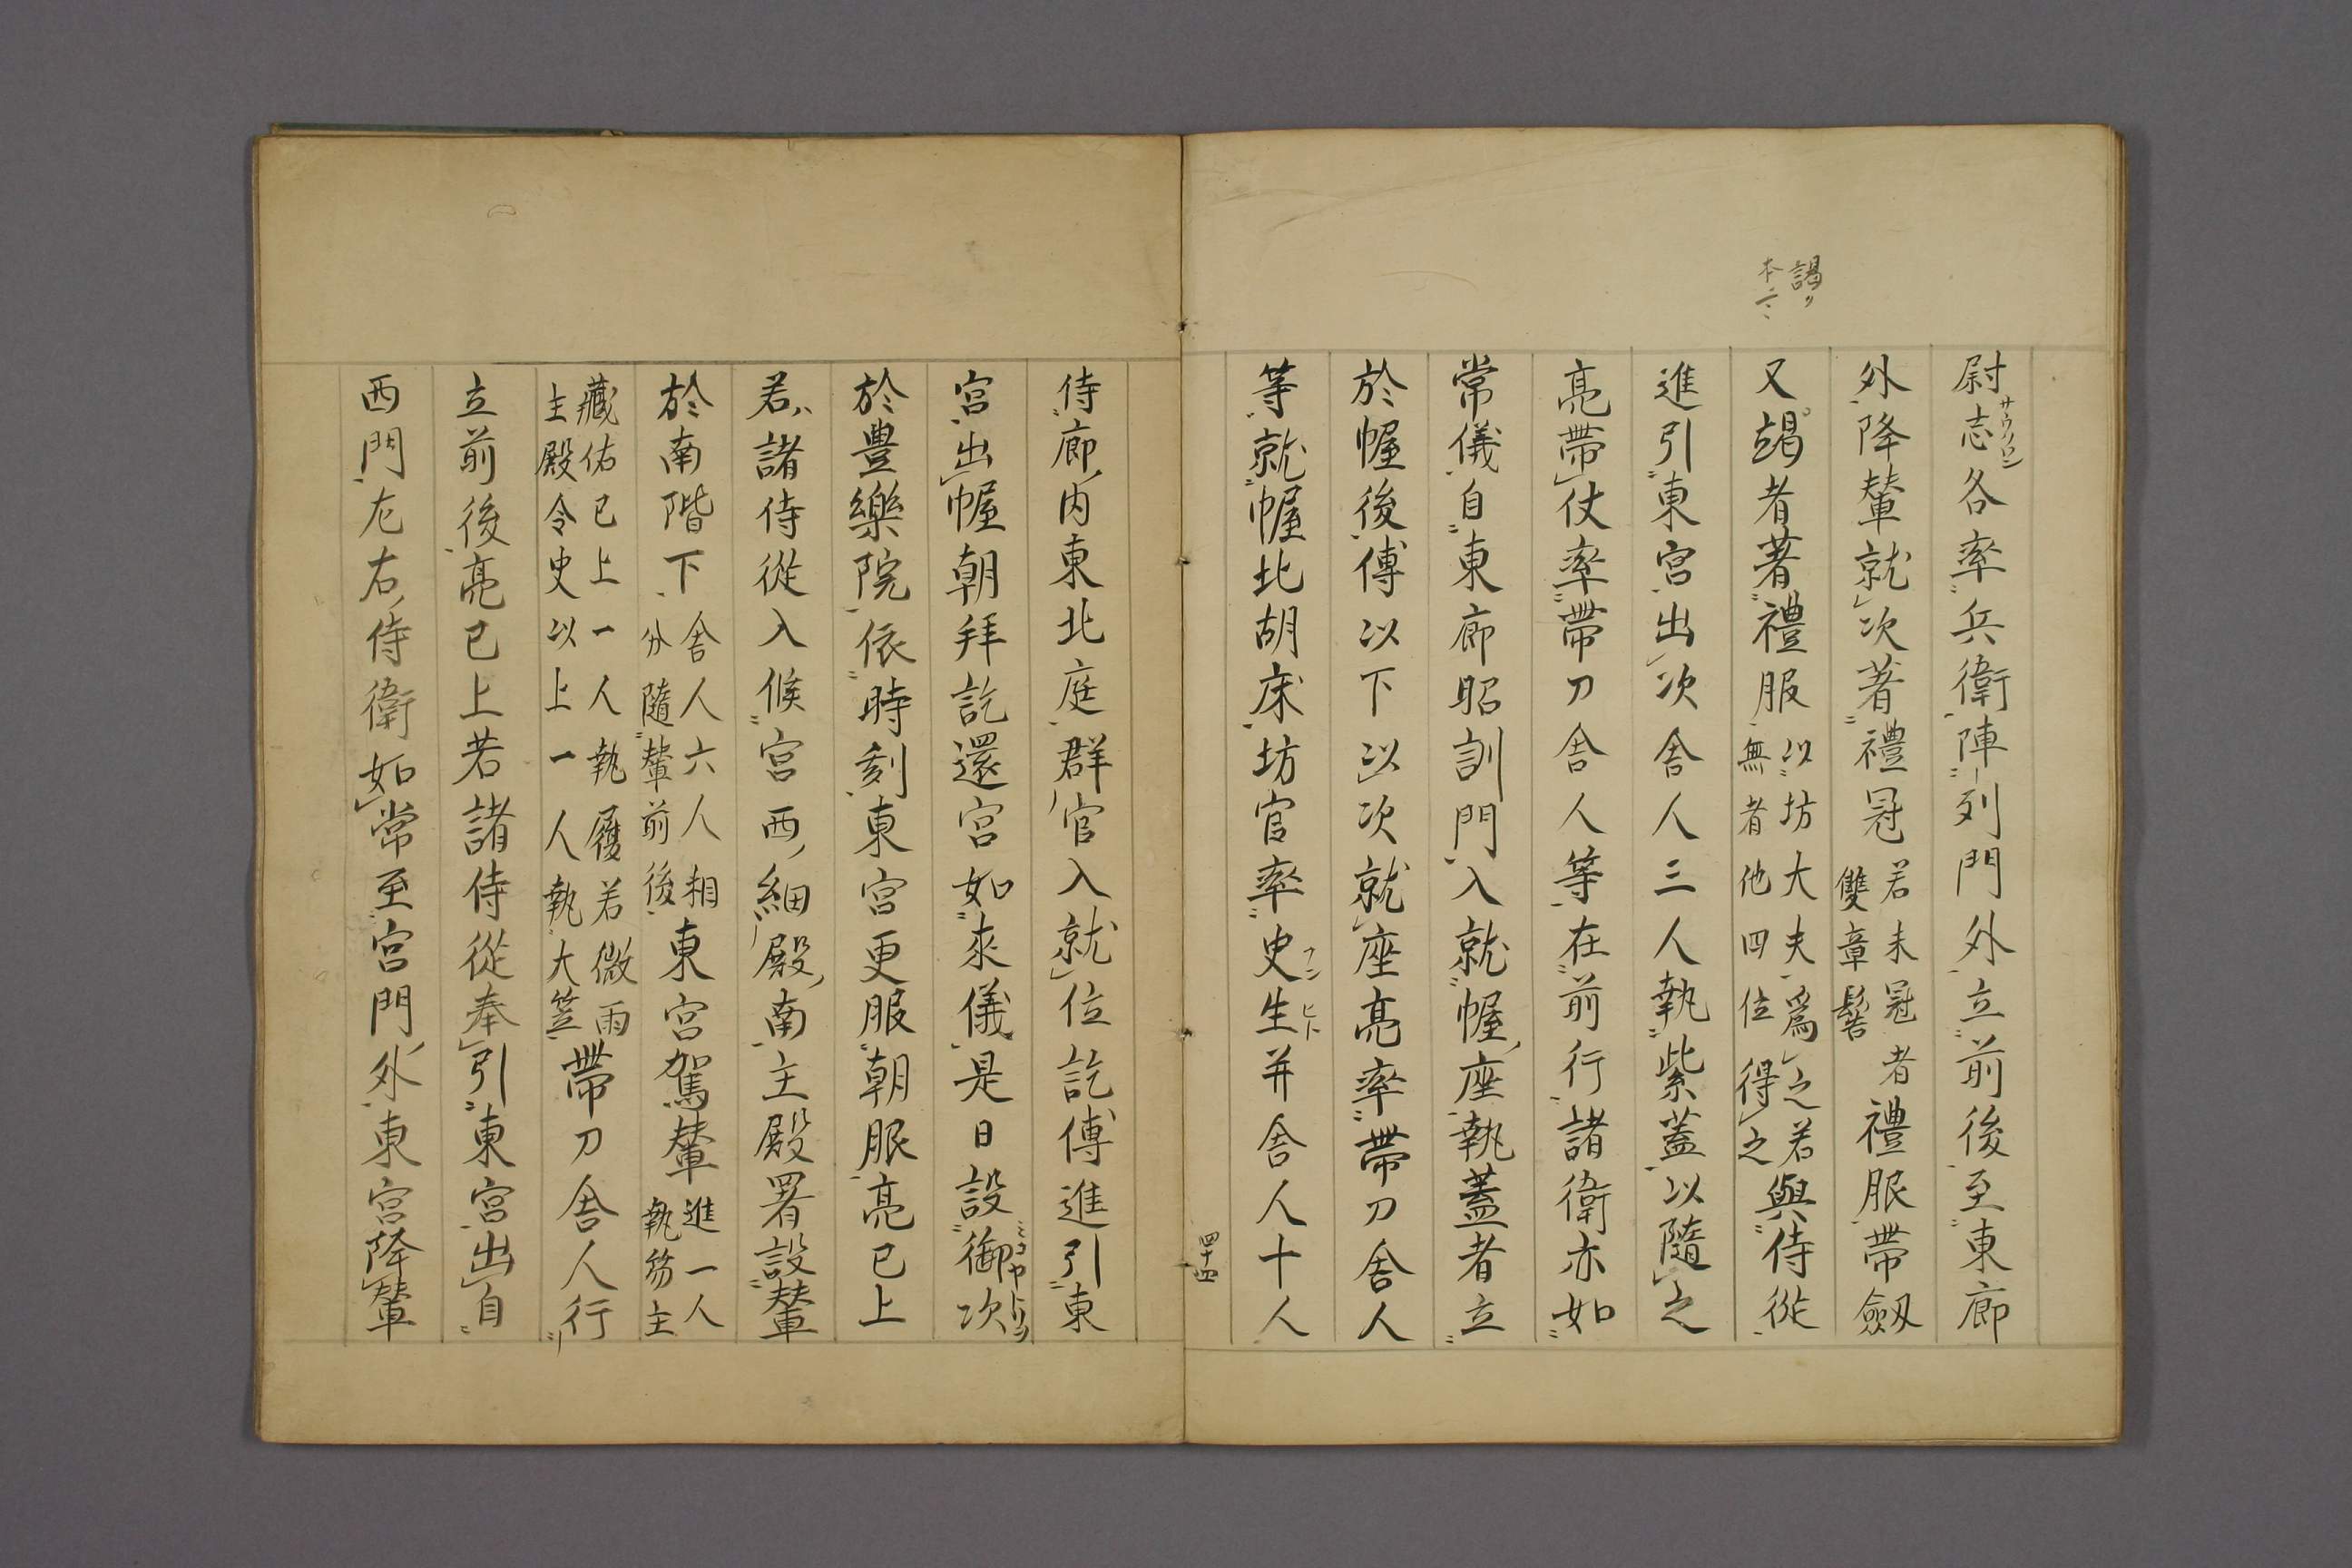 謁リ
本ニ
尉志各率兵衛陣列門外立前後至東廊
サウクワン
外降輦就次著禮冠若未冠者雙章髻禮服帶劔
又趨者著禮服以坊大夫爲之若無者他四位得之與侍從
進引東宮出次舎人三人執紫蓋以隨之
亮帶仗率帶刀舎人等在前行諸衛亦如
常儀自東廊昭訓門入就幄座執蓋者立
於幄後傅以下以次就座亮率帶刀舎人
等就幄北胡床坊官率史生并舎人十人
フンヒト
四十四
侍廊内東北庭群官入就位訖傅進引東
宮出幄朝拜訖還宮如來儀是日設御次
ミコヤトリヲ
於豊樂院依時刻東宮更服朝服亮已上
若諸侍從入候宮西細殿南主殿署設輦
於南階下舎人六人相分隨輦前後東宮駕輦進一人執笏主
藏佑已上一人執履若微雨主殿令史以上一人執大笠帶刀舎人行
立前後亮已上若諸侍從奉引東宮出自
西門左右侍衛如常至宮門外東宮降輦